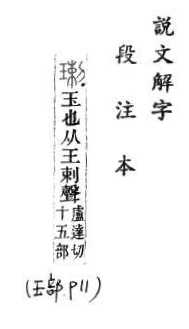 説文解字
段注本
瓎玉也从王剌聲
盧達切
十五部
(王部 P11)